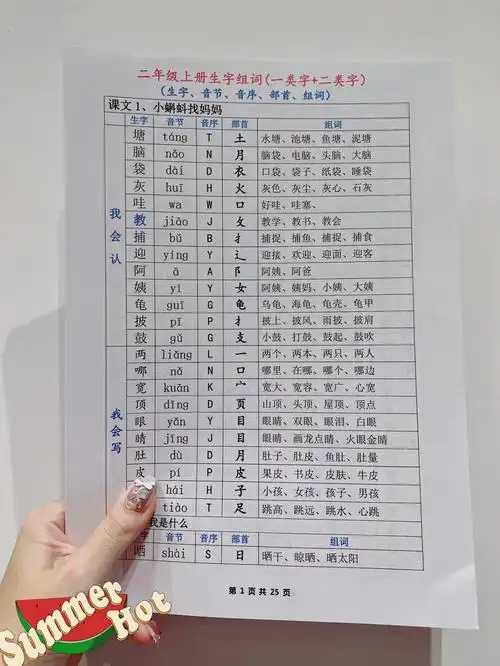 二年级上册生字组词(一类字+二类字)
(生字、音节、音序、部首、组词)
课文1、小蝌蚪找妈妈
生字 音节 音序 部首 组词
我会认
塘 táng T 土 水塘、池塘、鱼塘、泥塘
脑 nǎo N 月 脑袋、电脑、头脑、大脑
袋 dài D 衣 口袋、袋子、纸袋、睡袋
灰 huī H 火 灰色、灰尘、灰心、石灰
哇 wa W 口 好哇、哇塞、
教 jiāo J 攵 教学、教书、教会
捕 bǔ B 扌 捕捉、捕鱼、捕捞、捕食
迎 yíng Y 辶 迎接、欢迎、迎面、迎客
阿 ā A 阝 阿姨、阿爸
姨 yí Y 女 阿姨、姨妈、小姨、大姨
龟 guī G 龟 乌龟、海龟、龟壳、龟甲
披 pī P 扌 披上、披风、雨披、披肩
鼓 gǔ G 支 小鼓、打鼓、鼓起、鼓吹
我会写
两 liǎng L 一 两个、两本、两只、两人
哪 nǎ N 口 哪里、在哪、哪个、哪边
宽 kuān K 宀 宽大、宽容、宽广、心宽
顶 dǐng D 页 山顶、头顶、屋顶、顶点
眼 yǎn Y 目 眼睛、双眼、眼泪、白眼
睛 jīng J 目 眼睛、画龙点睛、火眼金睛
肚 dù D 月 肚子、肚皮、鱼肚、肚量
皮 pí P 皮 果皮、书皮、皮肤、牛皮
hái H 子 小孩、女孩、孩子、男孩
tiào T 足 跳高、跳远、跳水、心跳
我是什么
音节 音序 部首 组词
晒 shài S 日 晒干、晾晒、晒太阳
第 1 页 共 25 页
Summer
Hot